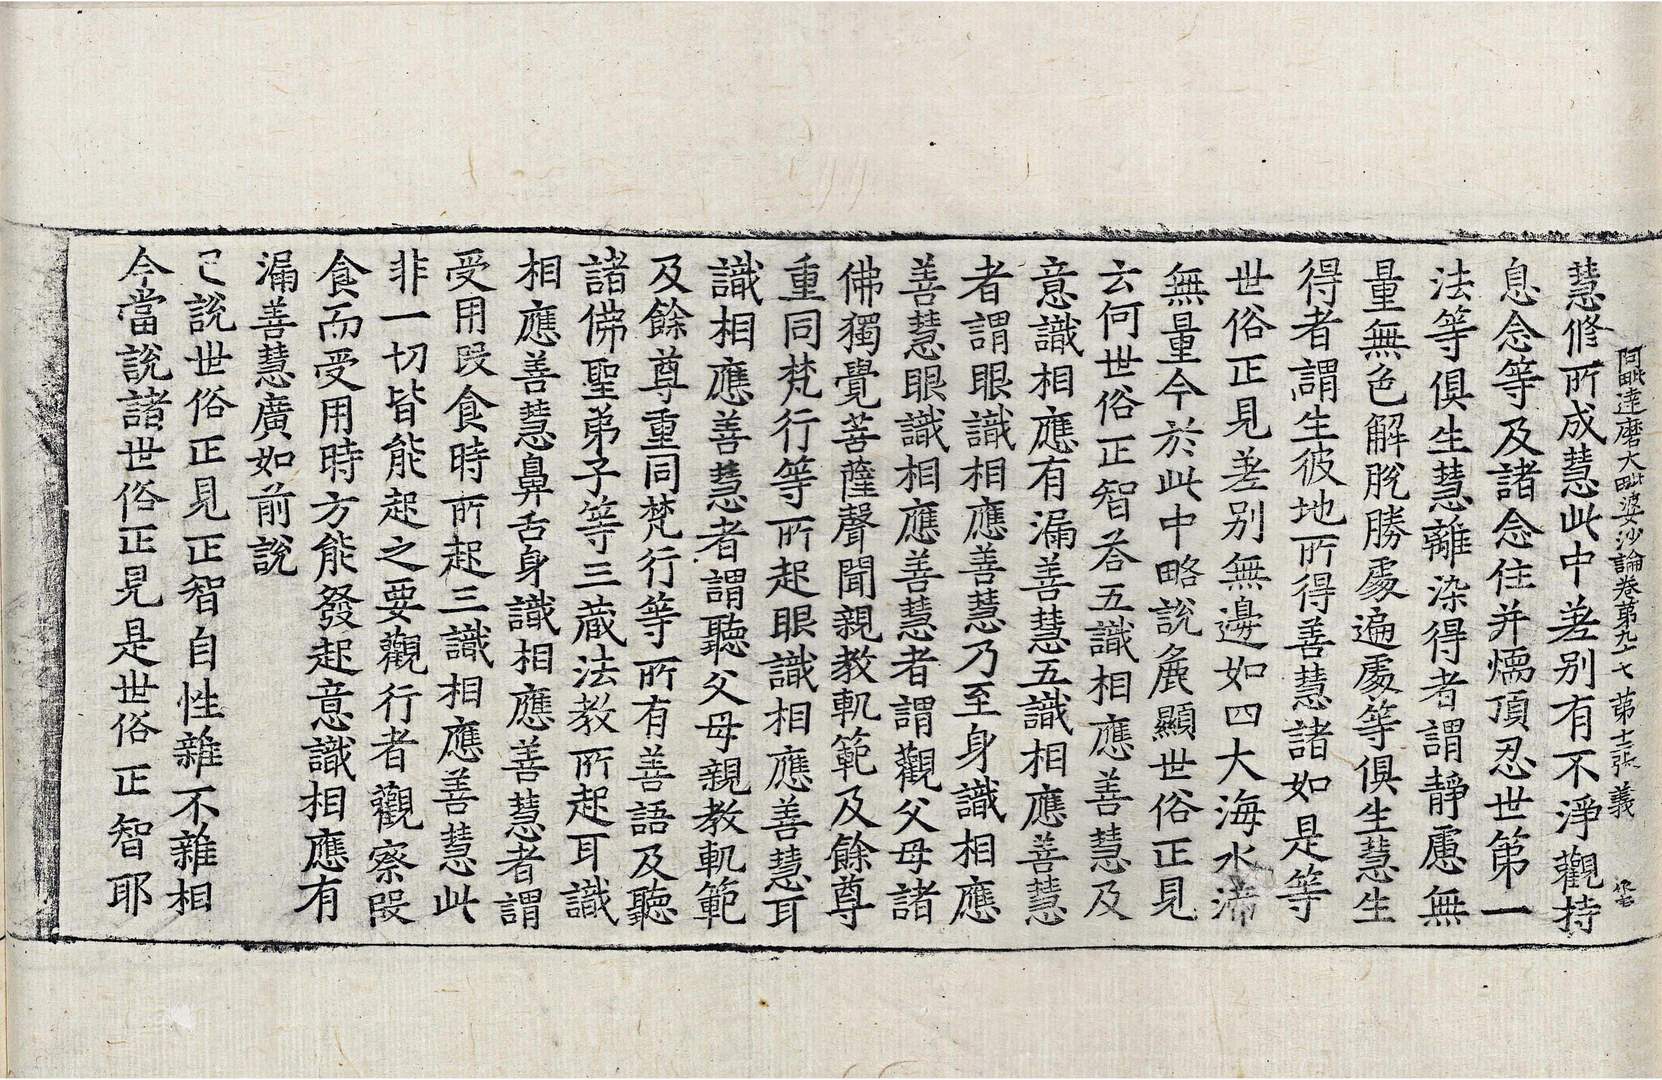 阿毗達磨大毗婆沙論卷第九十七 第十二張 義
慧修所成慧此中差別有不淨觀持
息念等及諸念住并煗頂忍世第一
法等俱生慧離染得者謂靜慮無
量無色解脫勝處遍處等俱生慧生
得者謂生彼地所得善慧諸如是等
世俗正見差別無邊如四大海水渧
無量今於此中略說麁顯世俗正見
云何世俗正智荅五識相應善慧及
意識相應有漏善慧五識相應善慧
者謂眼識相應善慧乃至身識相應
善慧眼識相應善慧者謂觀父母諸
佛獨覺菩薩聲聞親教軌範及餘尊
重同梵行等所起眼識相應善慧耳
識相應善慧者謂聽父母親教軌範
及餘尊重同梵行等所有善語及聽
諸佛聖弟子等三藏法教所起耳識
相應善慧鼻舌身識相應善慧者謂
受用段食時所起三識相應善慧此
非一切皆能起之要觀行者觀察段
食而受用時方能發起意識相應有
漏善慧廣如前說
已說世俗正見正智自性雜不雜相
今當說諸世俗正見是世俗正智耶